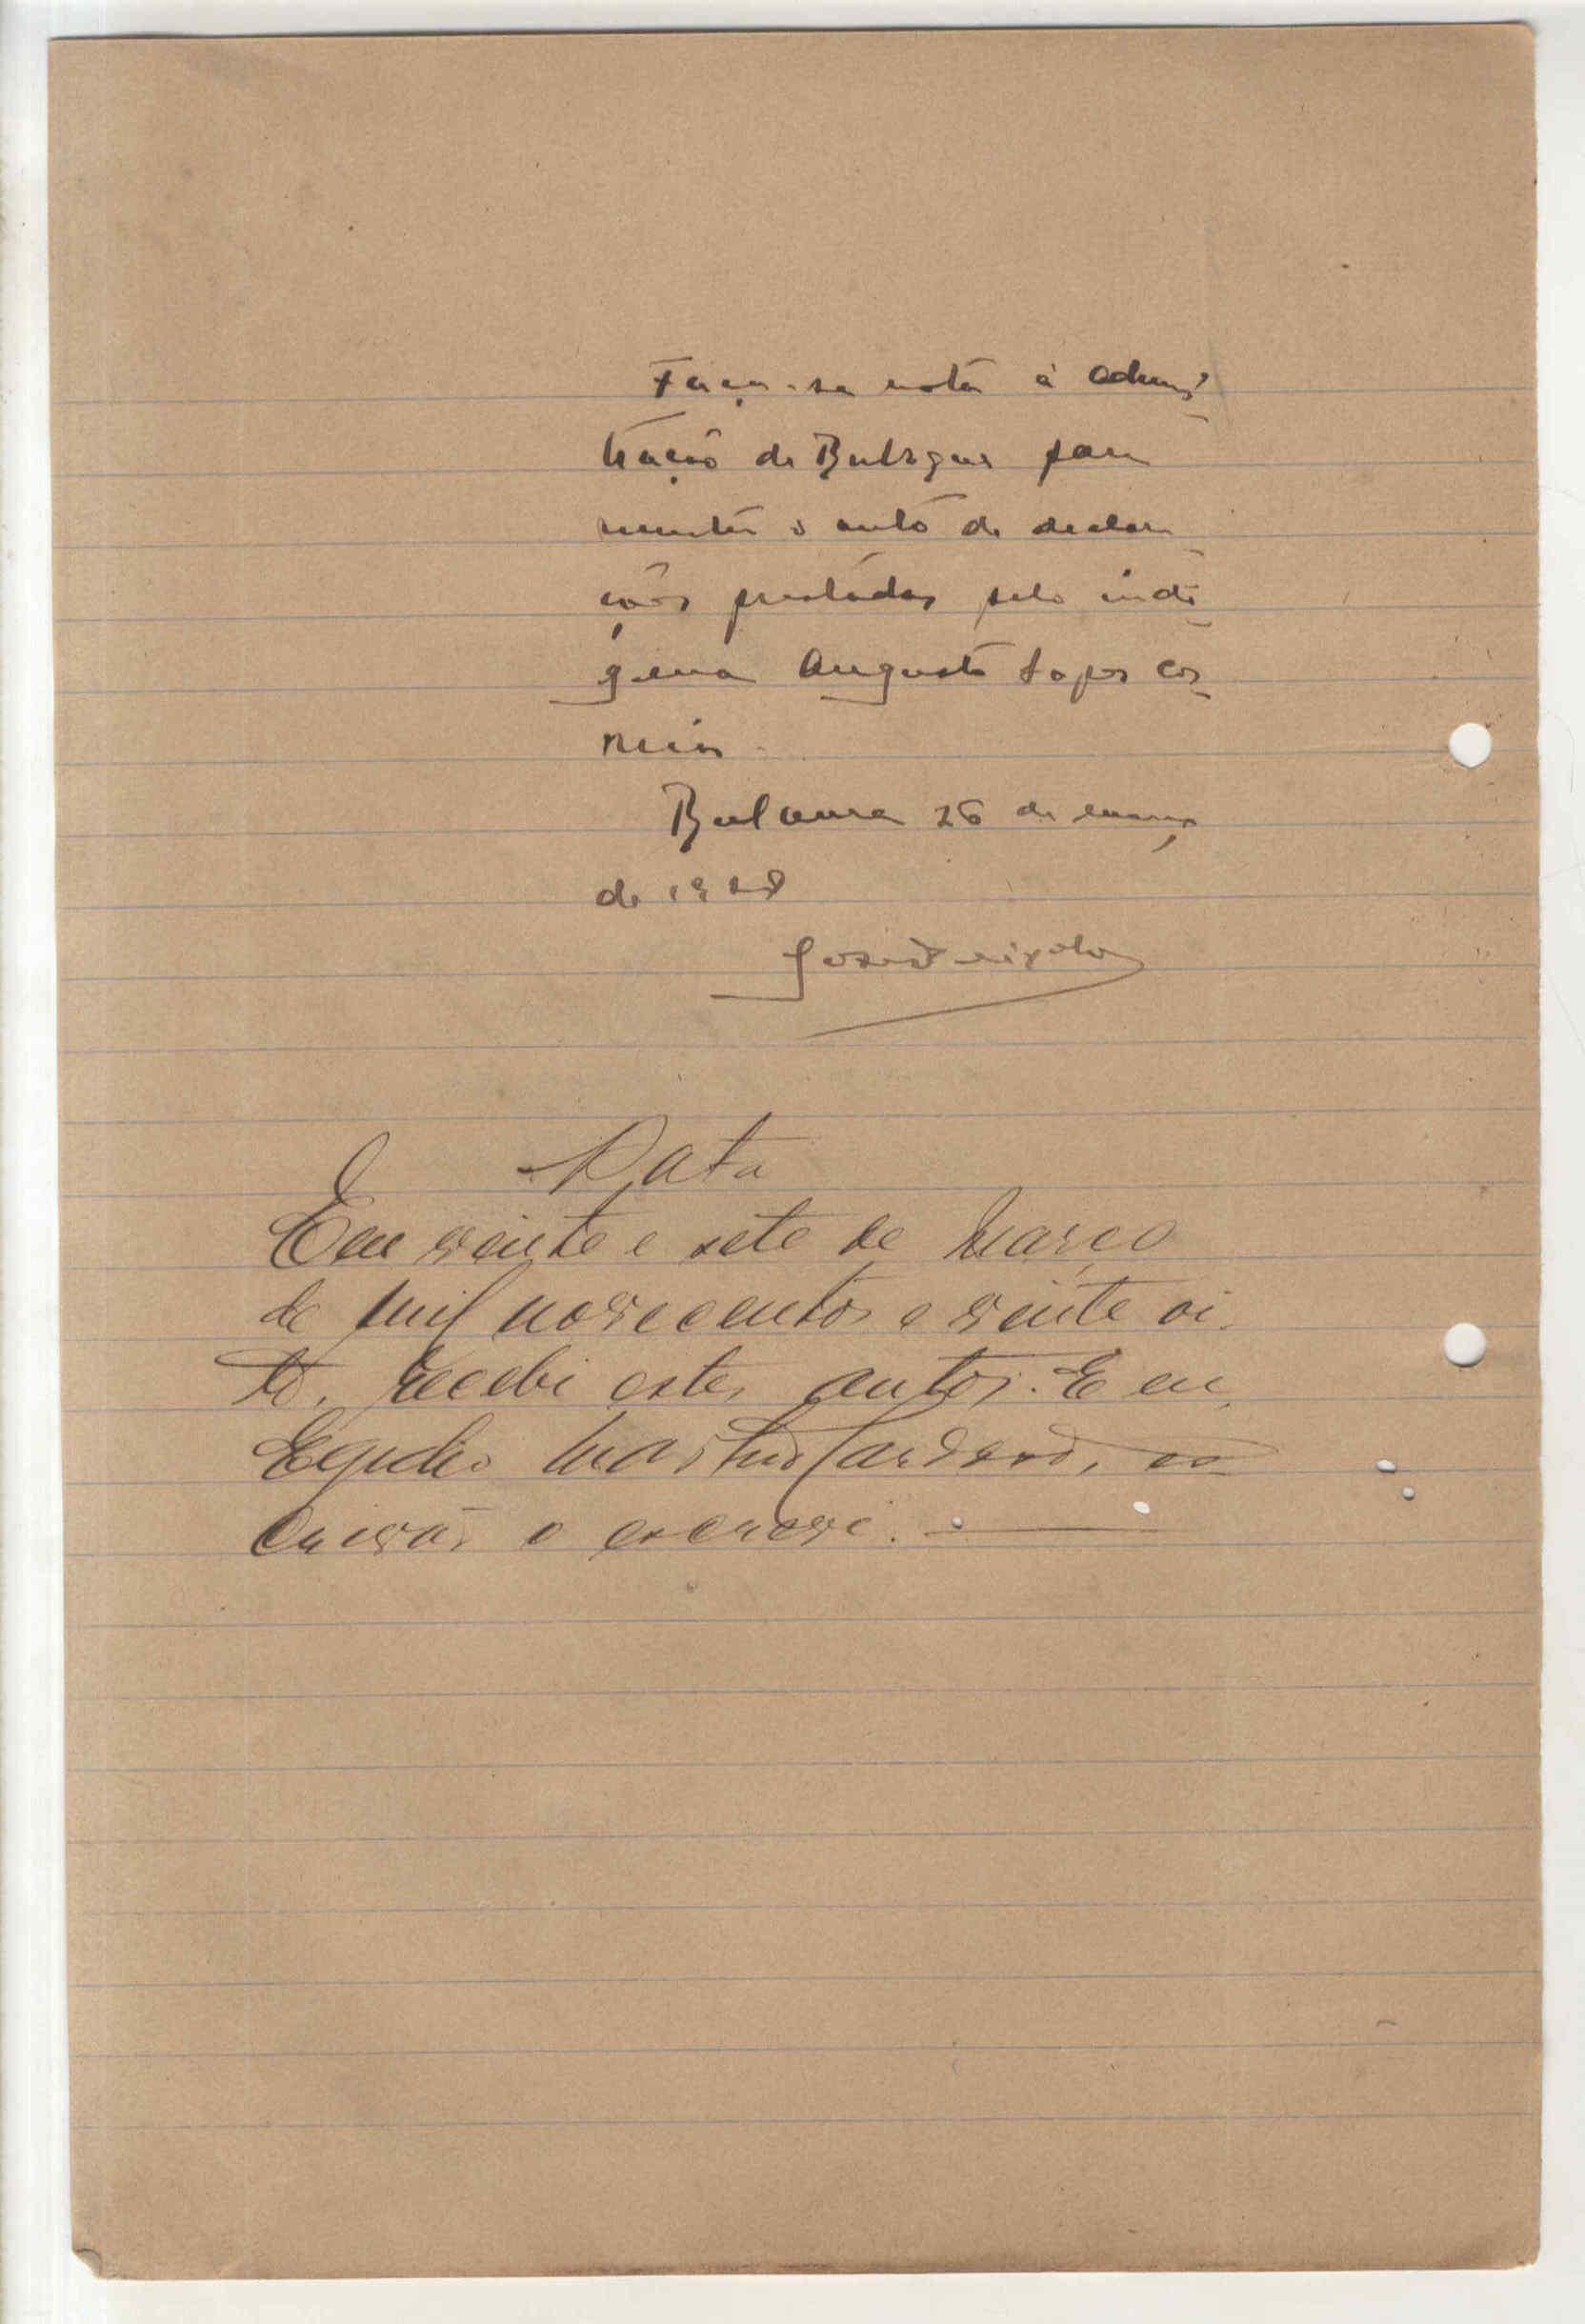 Faça-se nota à Adminis-
tração de Buba que para
remeter o auto de declara-
ções prestadas pelo indi-
gena Augusto Lopes Cor-
reia.
Bolama 26 de março
de 1928
Data
Em vinte e sete de Março
de mil novecentos e vinte oi-
to, recebi estes autos. E eu,
Egidio Martins Cardoso, es-
crivão o escrevi.